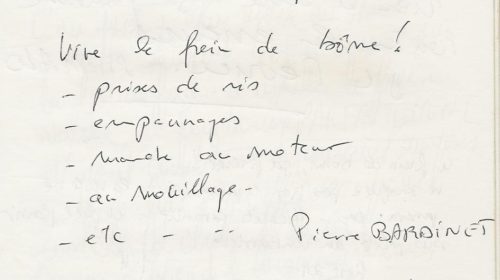 Vive le frein de bôme !
- prises de ris
- empannages
- marche au moteur
- au mouillage -
- etc - --  Pierre BARDINET